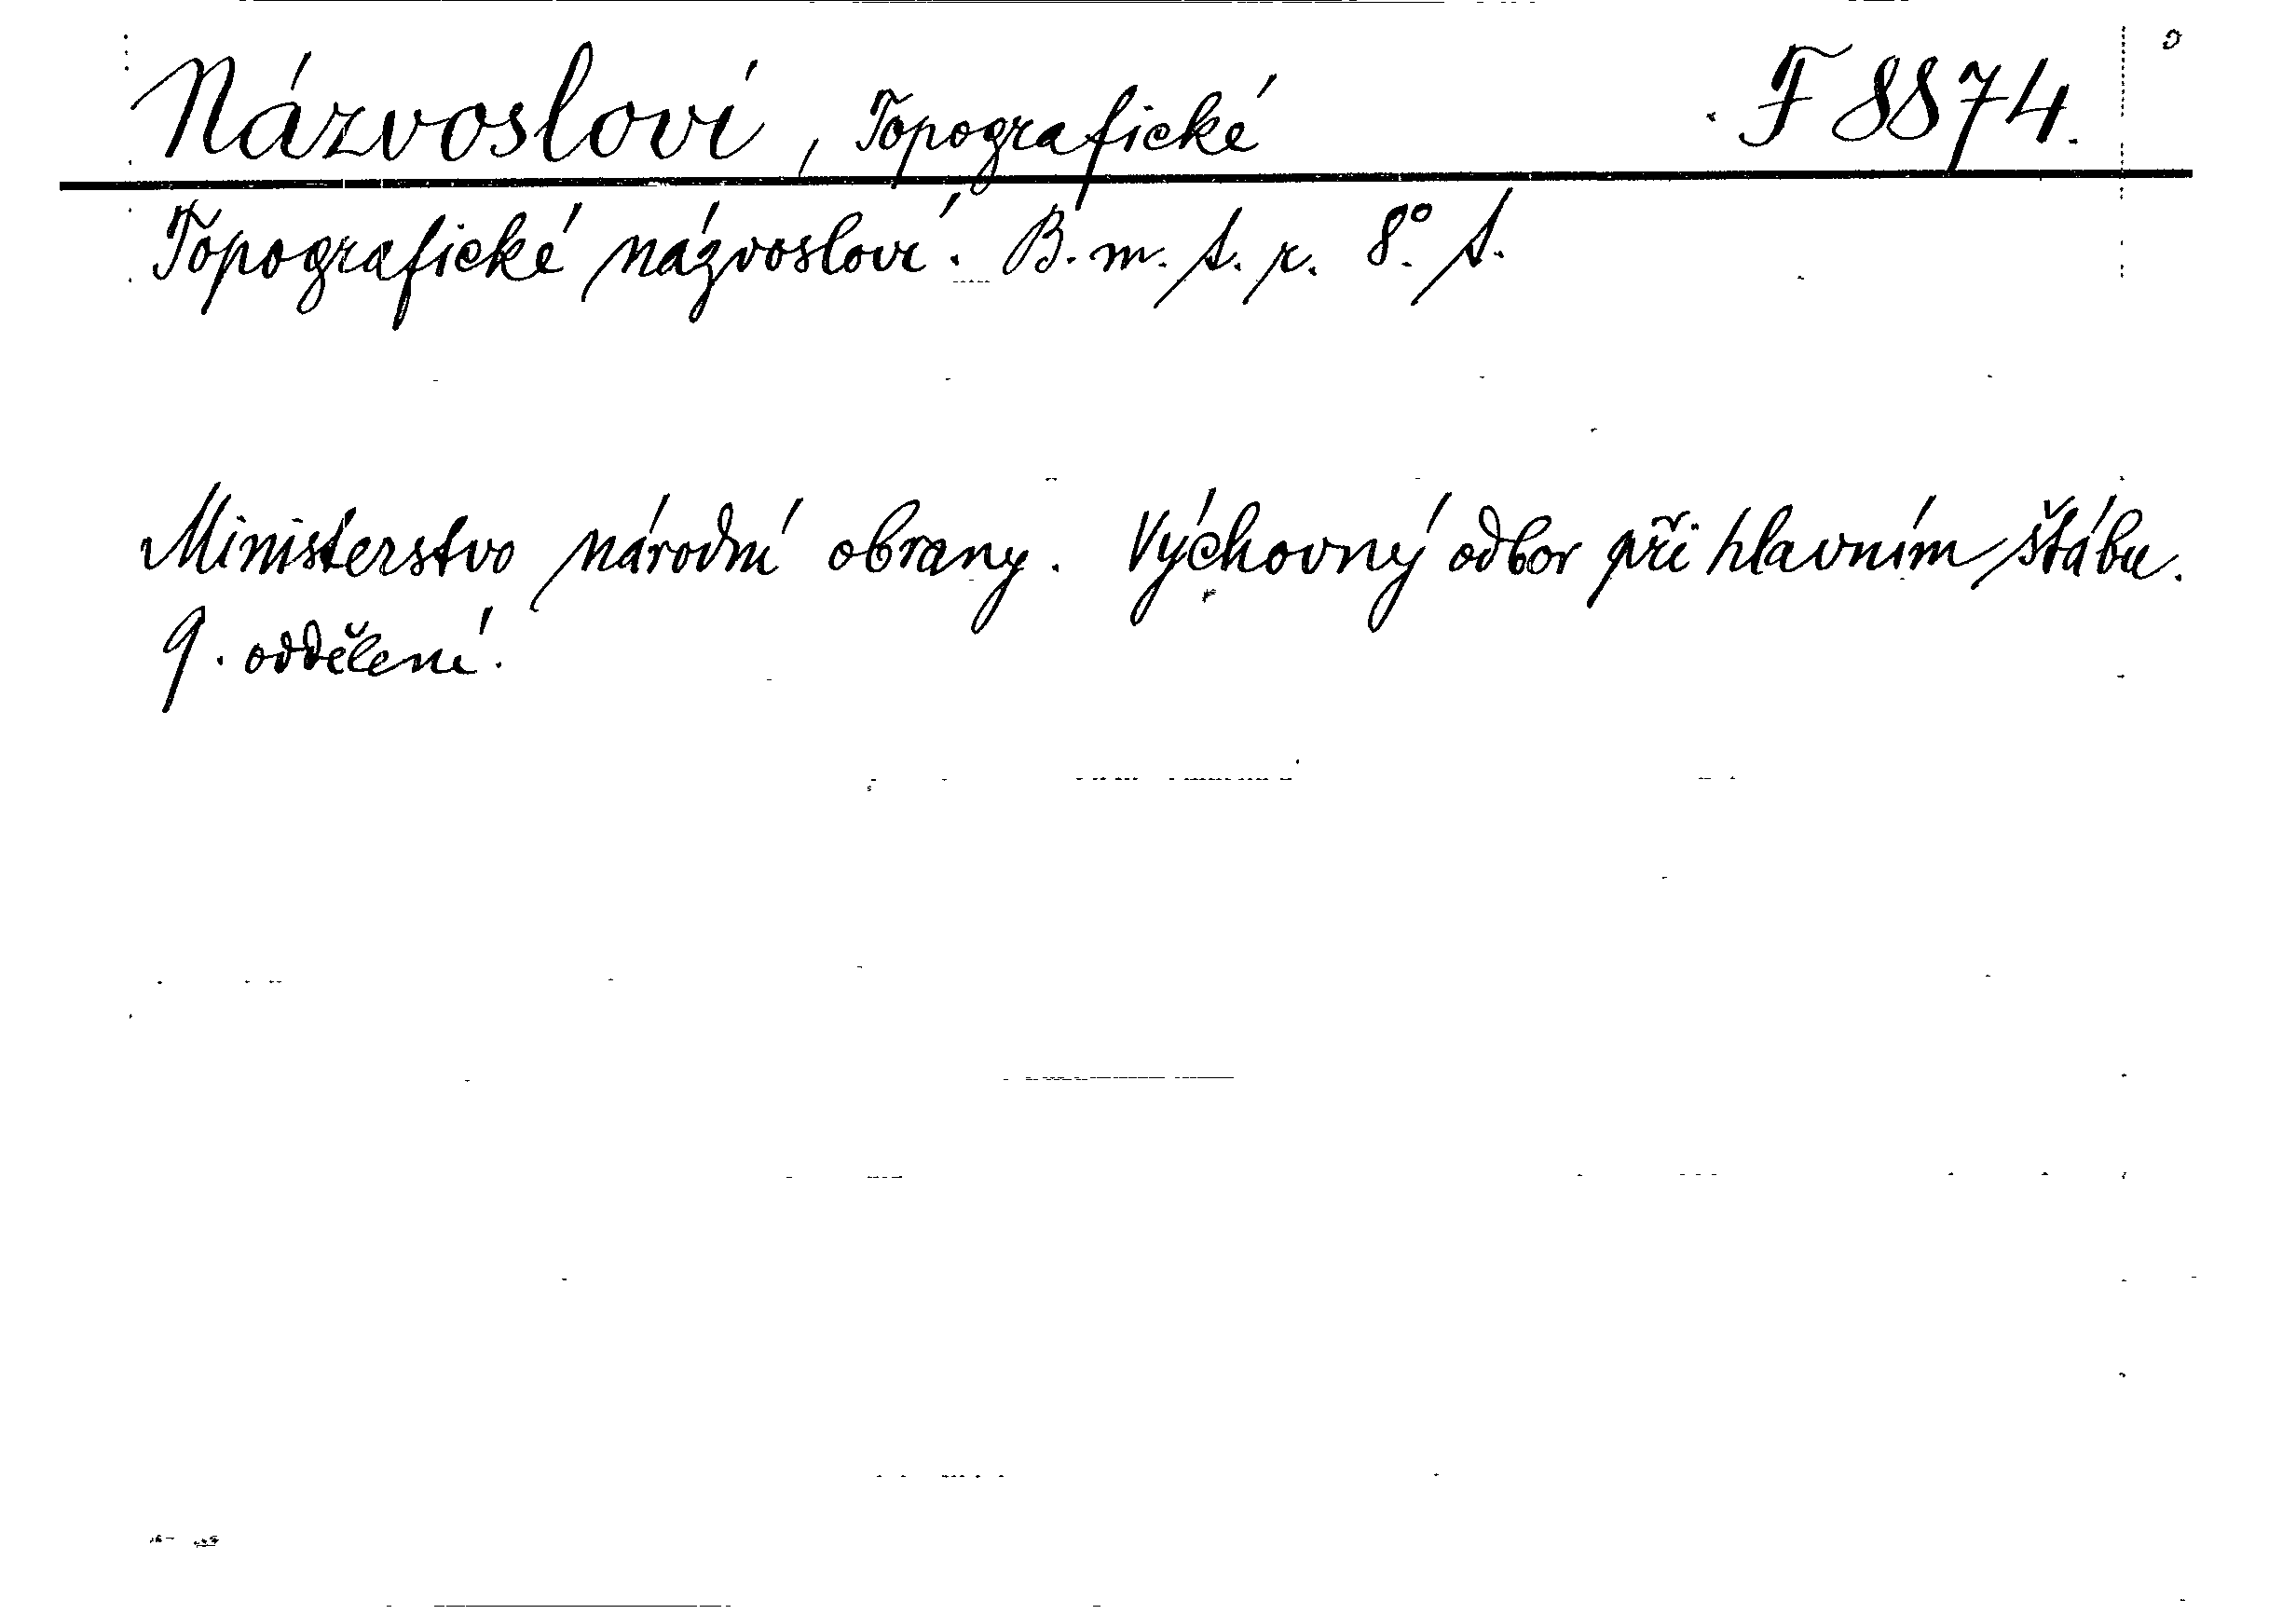 Názvosloví, Topografické F 8874.
Topografické názvosloví. B. m. s. r. 8°. s.
Ministerstvo národní obrany. Výchovný odbor při hlavním štábu.
9. oddělení.